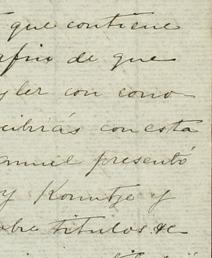 que contiene
de que
con como
cibirás con esta
anuel presentó
y Kountze y
obre titulos de